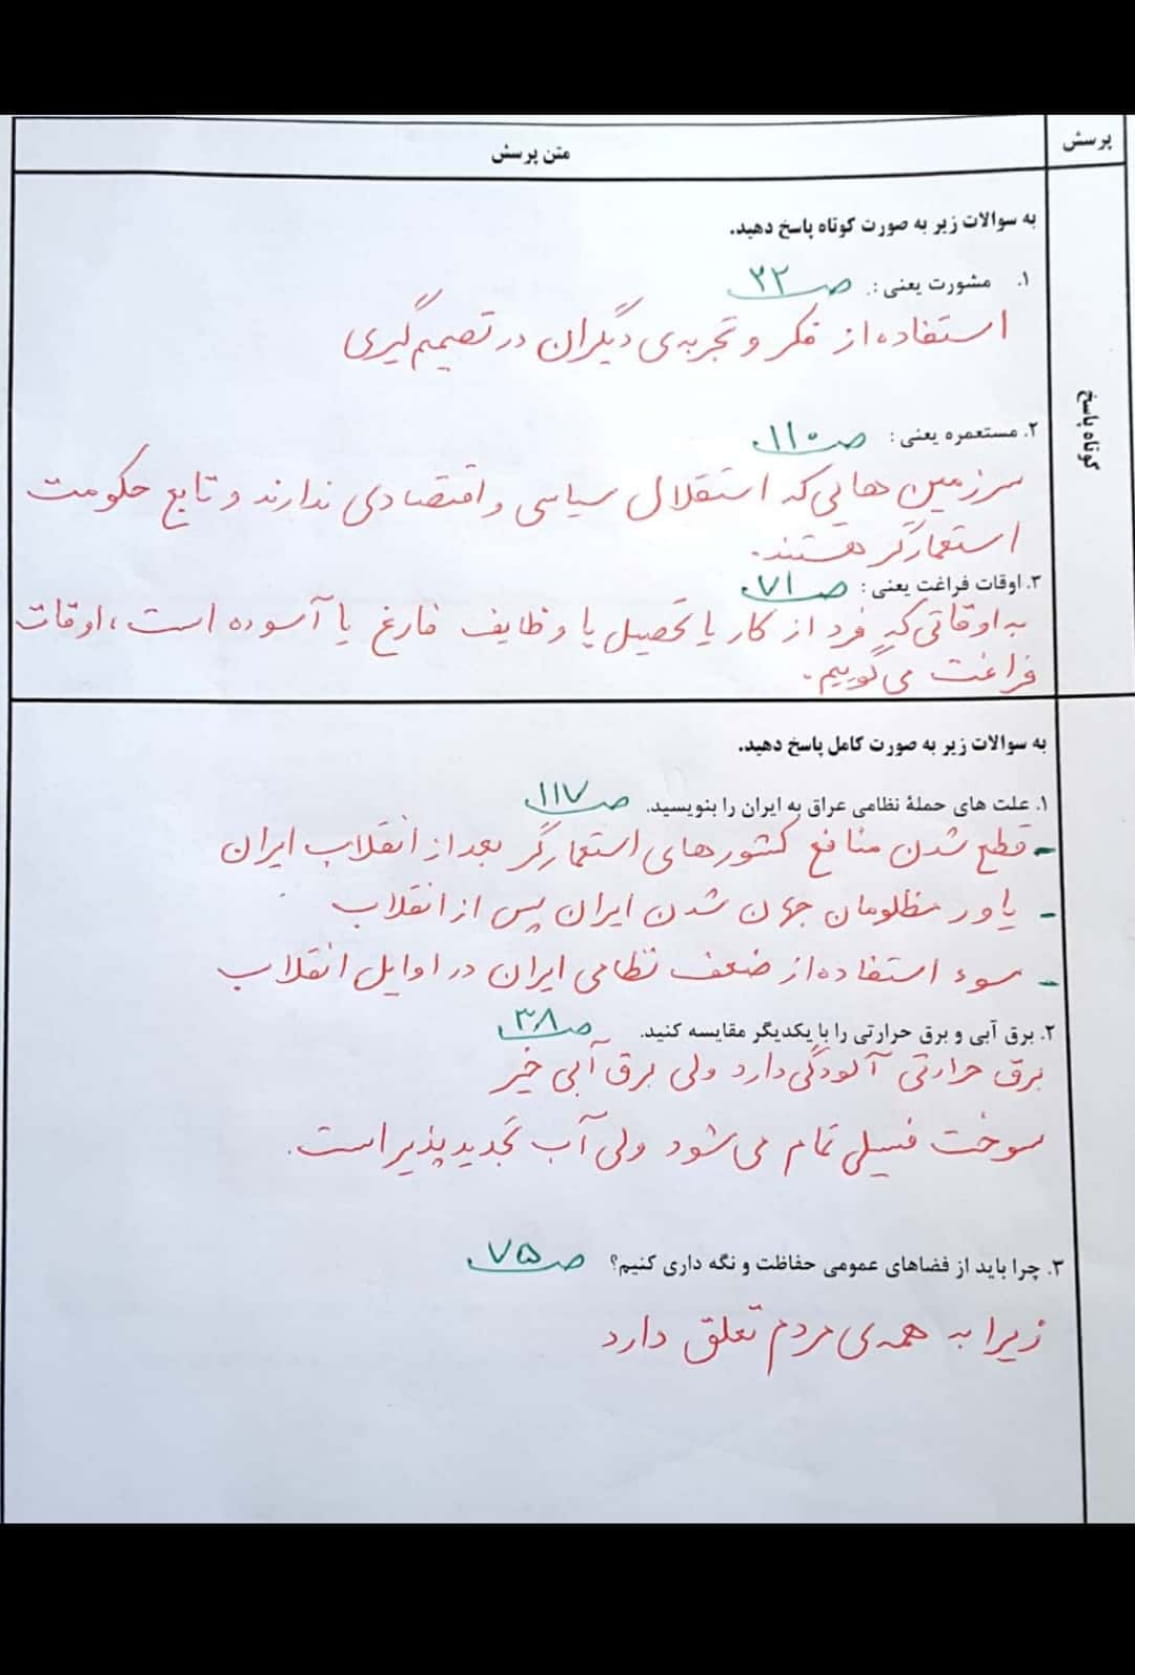 پرسش
متن پرسش
کوتاه پاسخ
به سوالات زیر به صورت کوتاه پاسخ دهید.
۱. مشورت یعنی : ص ۲۲
استفاده از فکر و تجربه‌ی دیگران در تصمیم گیری
۲. مستعمره یعنی : ص ۱۱۰
سرزمین هایی که استقلال سیاسی و اقتصادی ندارند و تابع حکومت
استعمارگر هستند.
۳. اوقات فراغت یعنی : ص ۷۱
به اوقاتی که فرد از کار یا تحصیل یا وظایف فارغ یا آسوده است، اوقات
فراغت می گوییم.
به سوالات زیر به صورت کامل پاسخ دهید.
۱. علت های حملهٔ نظامی عراق به ایران را بنویسید. ص ۱۱۷
- قطع شدن منافع کشورهای استعمارگر بعد از انقلاب ایران
- یاور مظلومان جهان شدن ایران پس از انقلاب
- سوء استفاده از ضعف نظامی ایران در اوایل انقلاب
۲. برق آبی و برق حرارتی را با یکدیگر مقایسه کنید. ص ۳۸
برق حرارتی آلودگی دارد ولی برق آبی خیر
سوخت فسیلی تمام می شود ولی آب تجدید پذیر است.
۳. چرا باید از فضاهای عمومی حفاظت و نگه داری کنیم؟ ص ۷۵
زیرا به همه‌ی مردم تعلق دارد